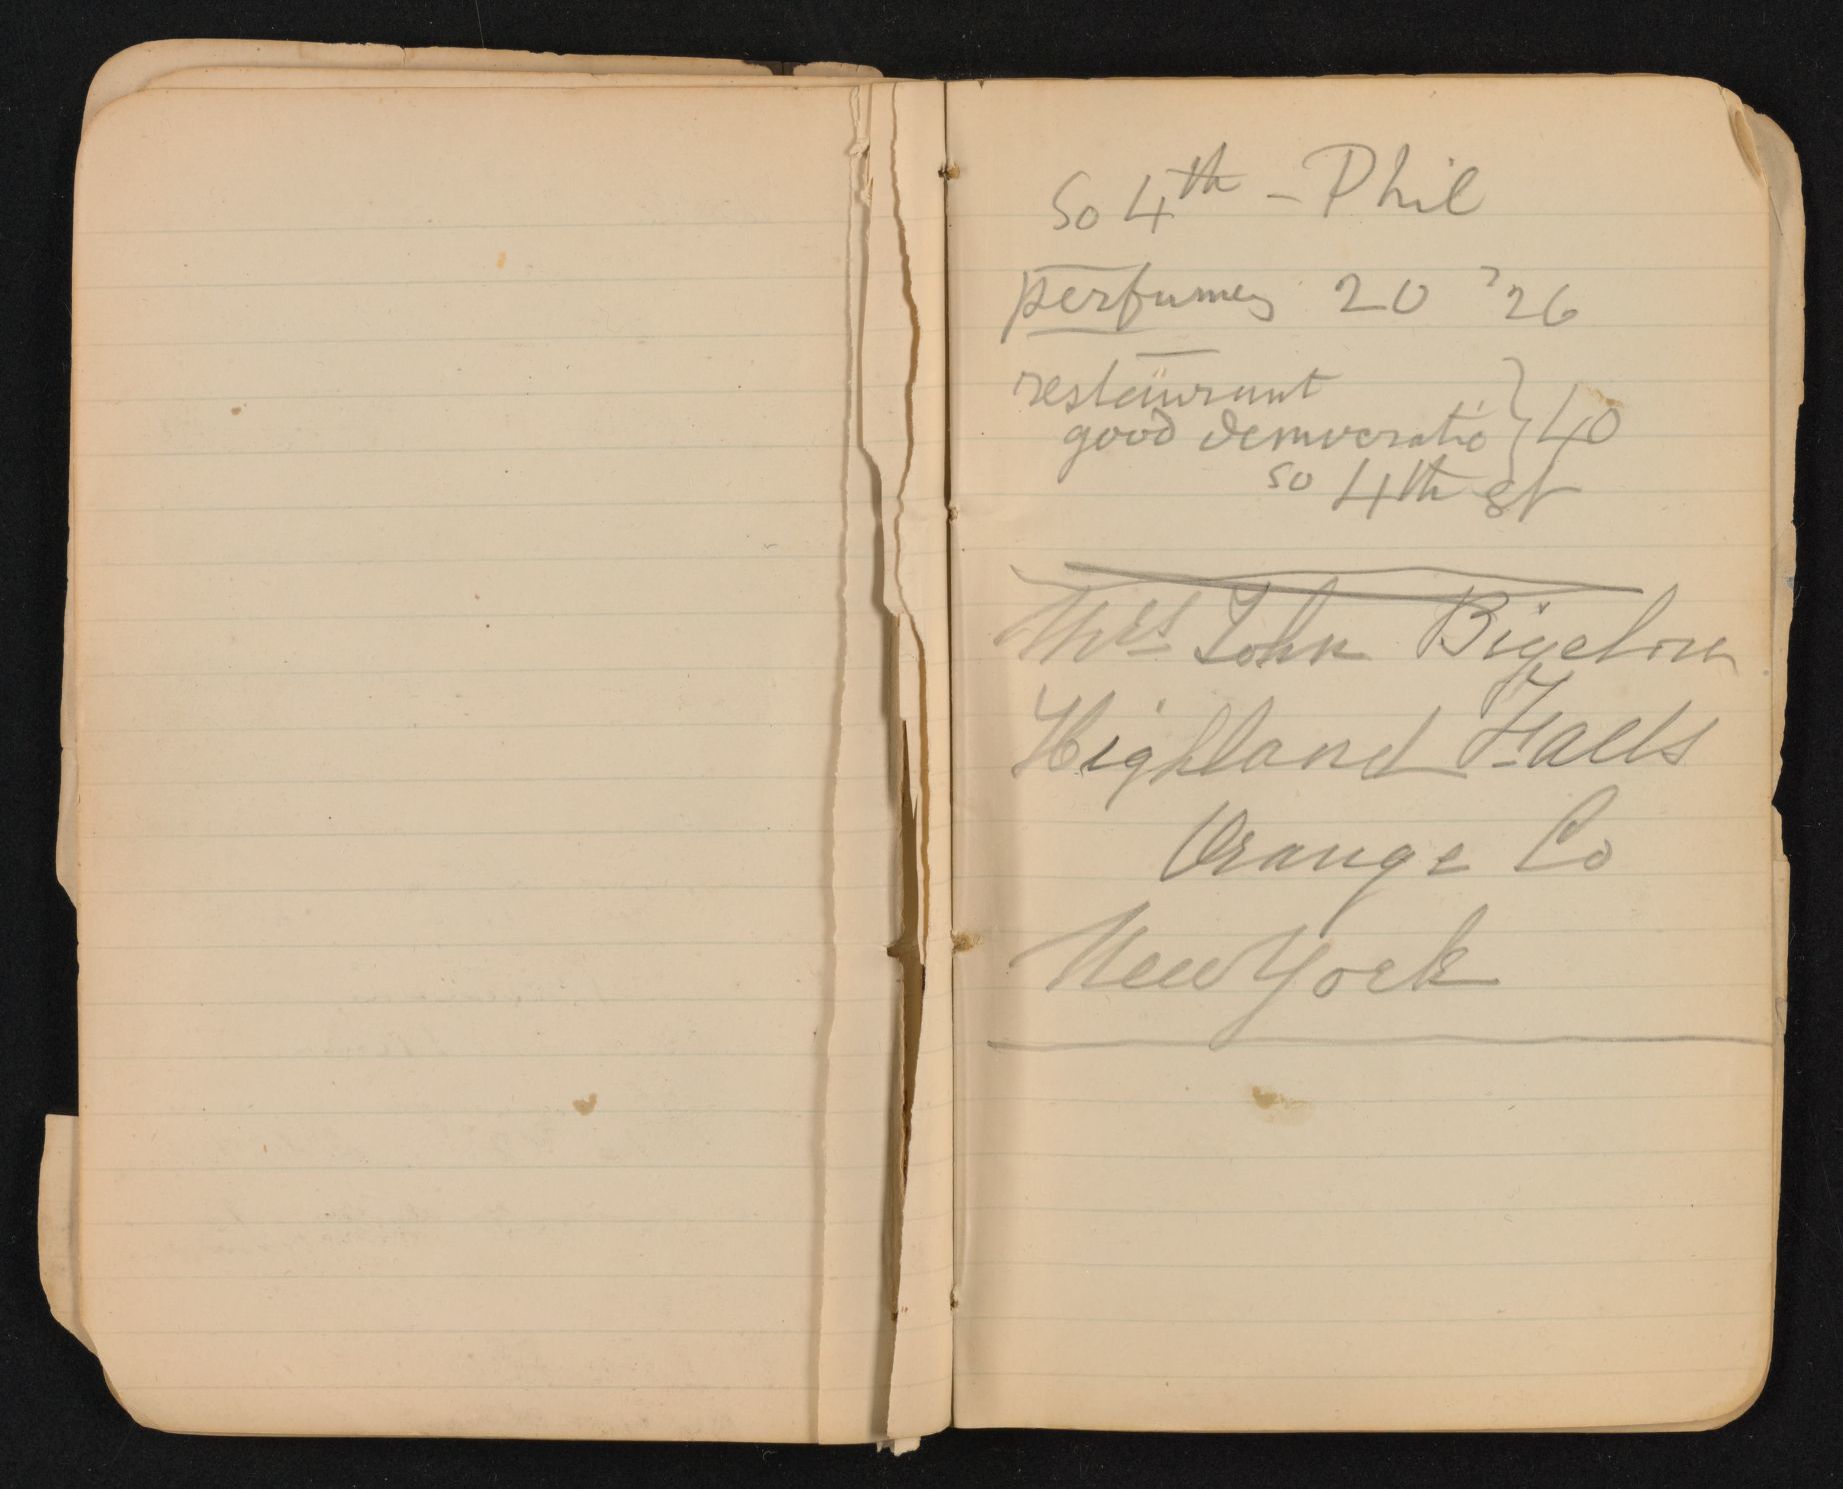 So 4th – Phil
perfumes 20 '26
restaurant
good democratic } 40
so 4th st
Mrs John Bigelow
Highland Falls
Orange Co
New York